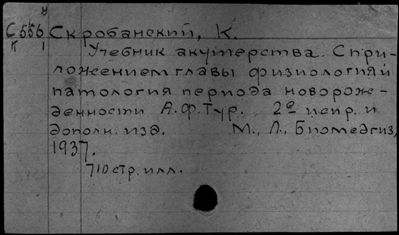 у
С556 Скробанский, К.
К 1 Учебник акушерства. С при-
ложением главы физиология и
патология периода новорож-
денности А.Ф.Тур. 2е испр. и
дополн. изд. М., Л., Биомедгиз,
1937.
710 стр. илл.